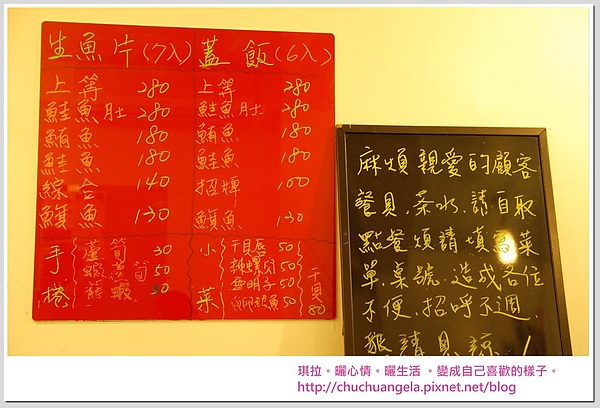 生魚片(7入)
上等 280
鮭魚肚 280
鮪魚 180
鮭魚 180
綜合 140
旗魚 130
蓋飯(6入)
上等 280
鮭魚肚 280
鮪魚 180
鮭魚 180
招牌 100
旗魚 130
手捲
蘆筍 30
蝦蘆筍 50
龍蝦 80
小菜
干貝唇 50
辣螺肉 50
魚明子 50
50
干貝 80
麻煩親愛的顧客
餐具.茶水.請自取
點餐煩請填寫菜
單.桌號.造成各位
不便.招呼不週.
敬請見諒!
琪拉。曬心情。曬生活 。變成自己喜歡的樣子。
http://chuchuangela.pixnet.net/blog